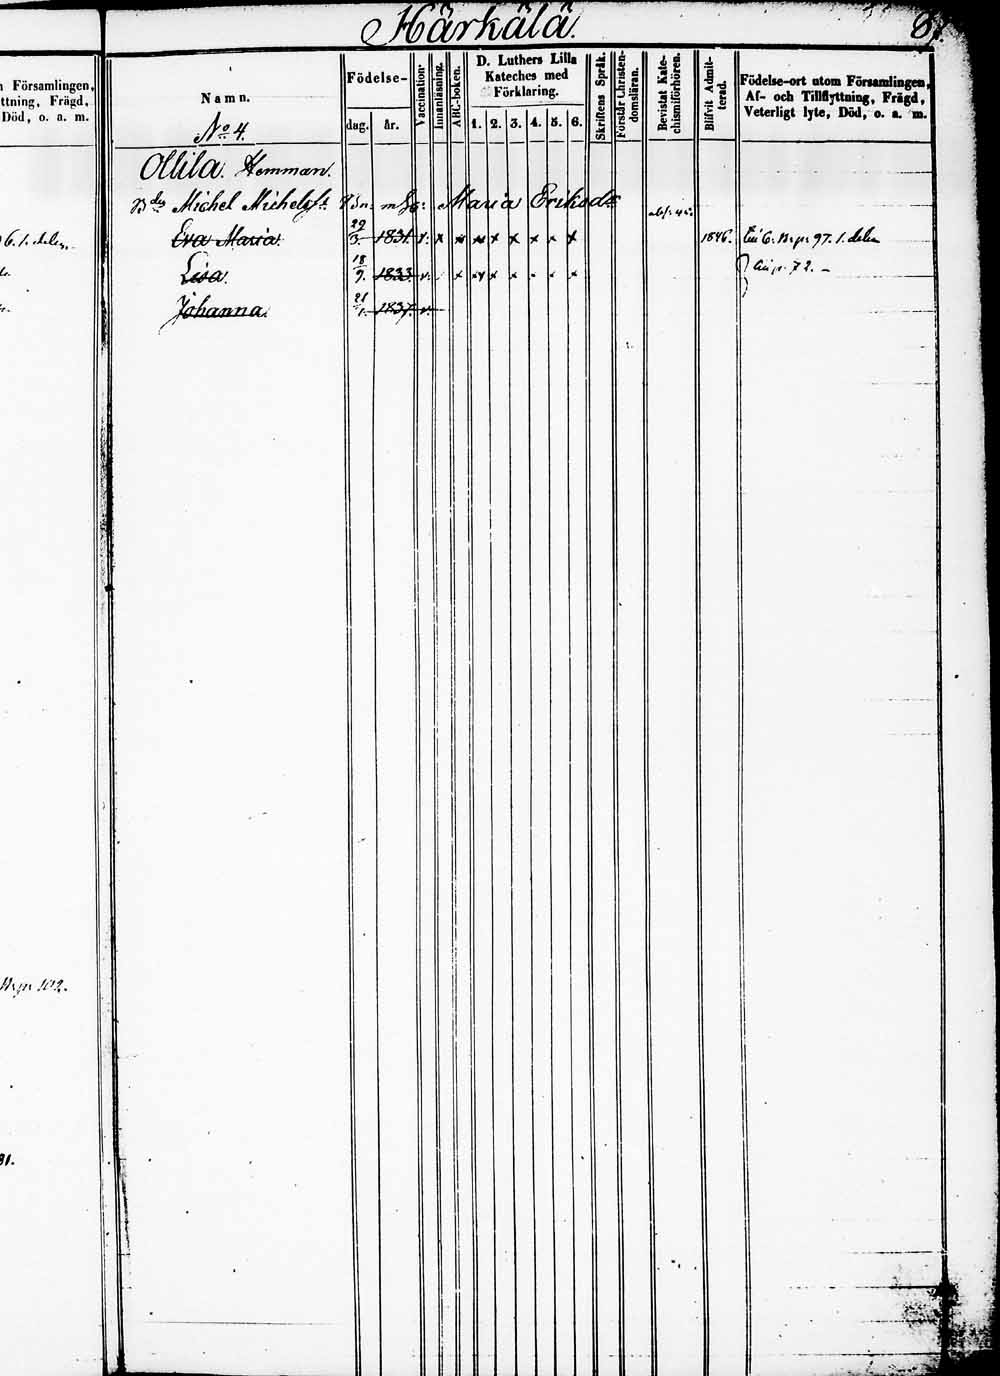 Härkälä.
Församlingen,
ttning, Frägd,
Död, o. a. m.
Namn.
Födelse-
dag. år.
Vaccination
Innanläsning.
ABC-boken.
D. Luthers Lilla
Kateches med
Förklaring.
1. 2. 3. 4. 5. 6.
Skriftens Språk.
Förstår Christen-
domsläran.
Bevistat Kate-
chismiförhören.
Blifvit Admit-
terad.
Födelse-ort utom Församlingen,
Af- och Tillflyttning, Frägd,
Veterligt lyte, Död, o. a. m.
No 4.
Ollila. Hemman.
Michel Michelss: Maria Eriksdr
Eva Maria. 29/3. 1831. v. x x x x x x x x 1846. 97. 1. delen
Lisa. 18/9. 1833. v. x x x x 72.
Johanna. 21/1. 1837. v.
6. 1. delen.
102.
31.